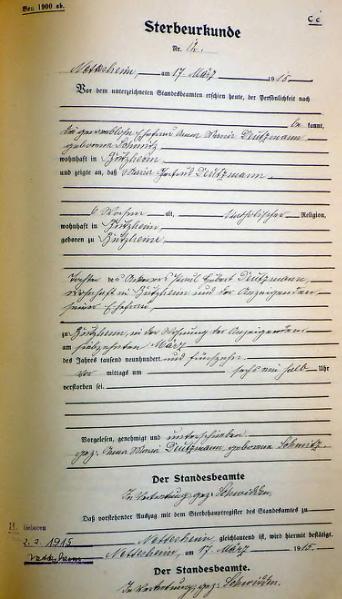 Bez. 1900 ab.
C c
Sterbeurkunde
Nr. 12.
Nettesheim, am 17 März 1915.
Vor dem unterzeichneten Standesbeamten erschien heute, der Persönlichkeit nach
be kannt,
die Ehefrau Anna Maria Deutzmann
geborene Schmitz
wohnhaft in Bützheim
und zeigte an, daß Maria Gertrud Deutzmann
6 Wochen alt, katholischer Religion,
wohnhaft in Bützheim
geboren zu Bützheim
Tochter des Ackerers Hubert Deutzmann,
wohnhaft in Bützheim und der Anzeigenden
seiner Ehefrau
zu Bützheim in der Wohnung der Anzeigenden
am siebzehnten März
des Jahres tausend neunhundert und fünfzehn
vor mittags um sechs einhalb Uhr
verstorben sei.
Vorgelesen, genehmigt und unterschrieben
gez: Anna Maria Deutzmann geborene Schmitz
Der Standesbeamte
In Vertretung: gez:
Daß vorstehender Auszug mit dem Sterbehauptregister des Standesamtes zu
Nettesheim, gleichlautend ist, wird hiermit bestätigt.
Nettesheim, am 17 März 1915.
Der Standesbeamte.
In Vertretung: gez:
Geboren
2. 2. 1915
Nettesheim